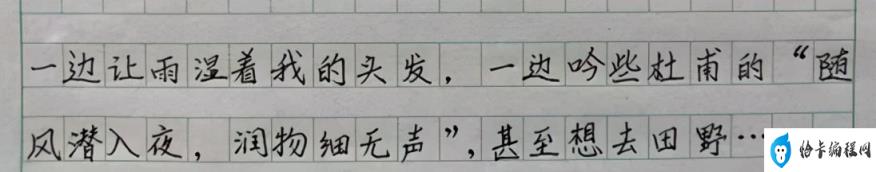 一边让雨湿着我的头发，一边吟些杜甫的“随
风潜入夜，润物细无声”，甚至想去田野…
恰卡编程网